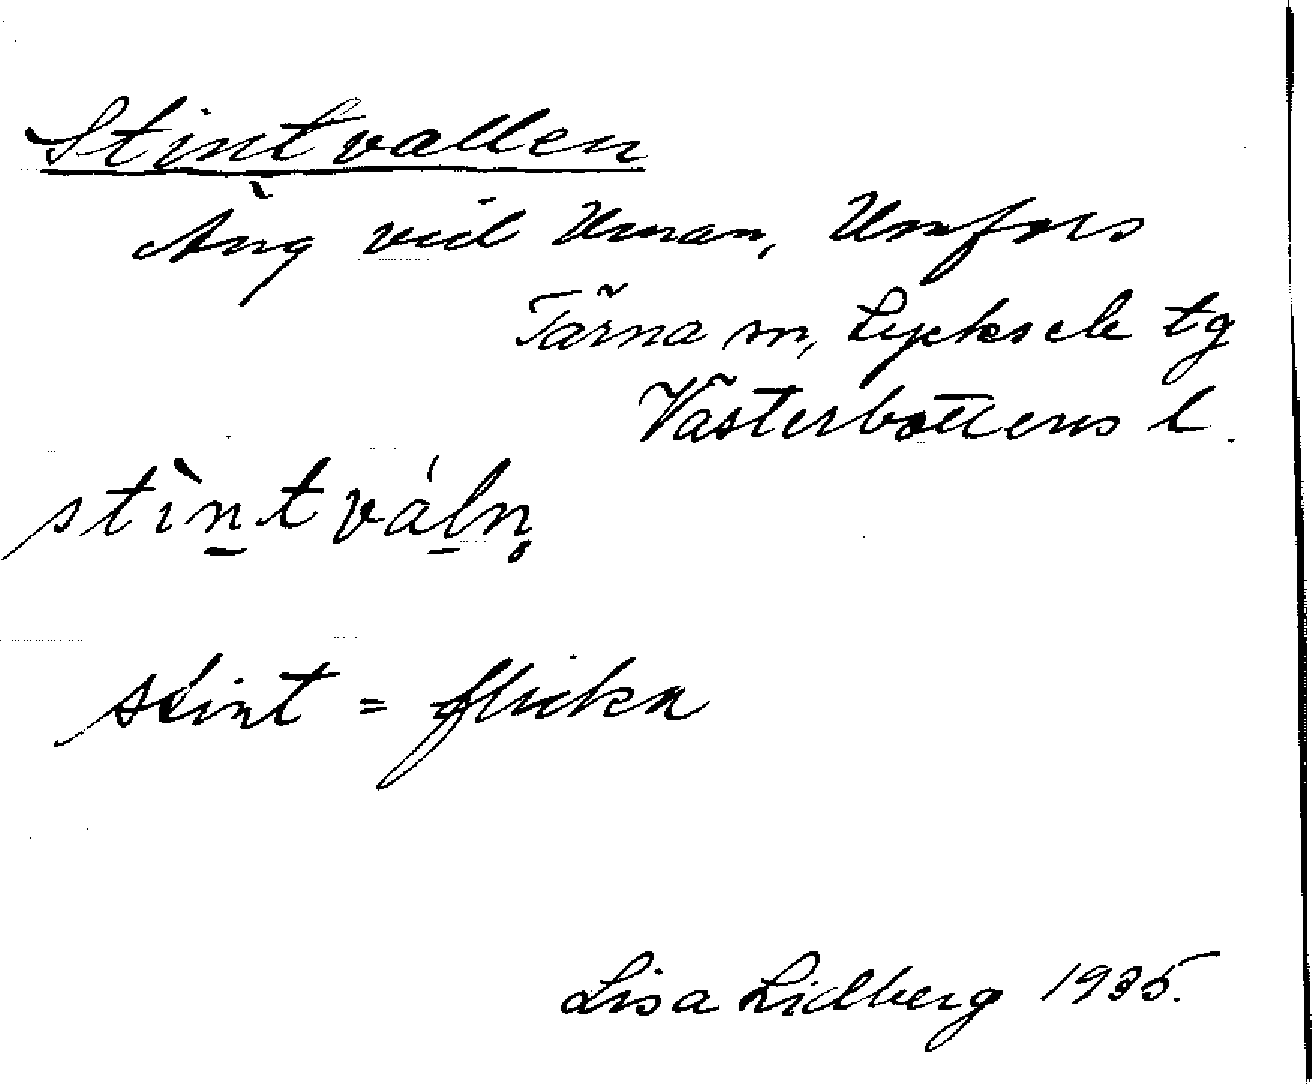 Stintvallen
Äng vid Uman, Umfors
Tärna sn, Lycksele tg
Västerbottens l.
stìn̠tvál̠n̥
stint = flicka
Lisa Lidberg 1935.